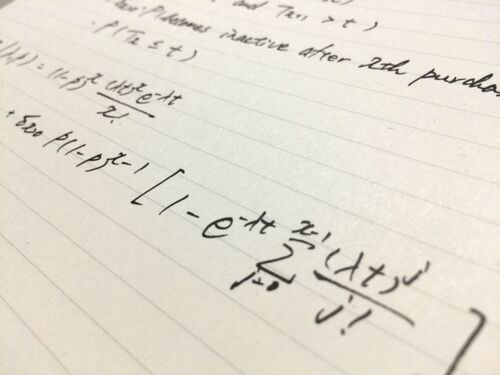 and Tx+1 > t)
becomes inactive after xth purcha
. P(Tx ≤ t)
(λ,p) = (1-p)^x (λt)^x e^-λt / x!
+ δx>0 p(1-p)^x-1 [1 - e^-λt Σ_{j=0}^{x-1} (λt)^j / j! ]